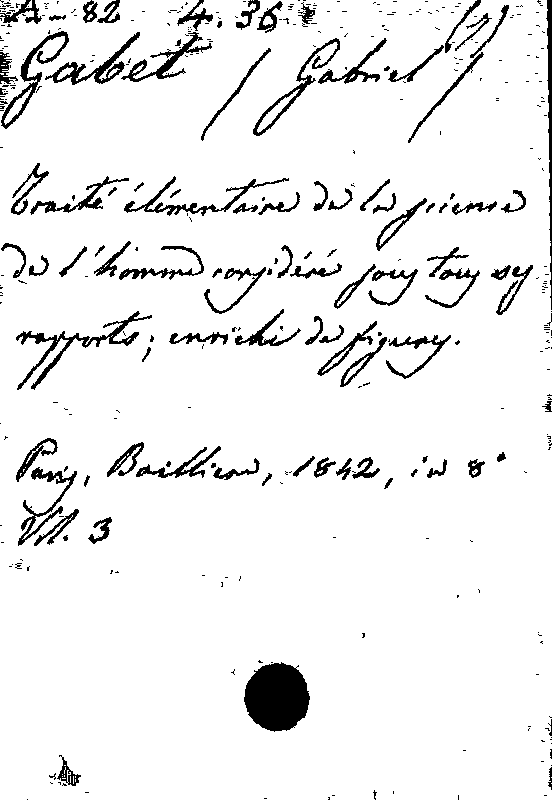 A - 82 4. 36
Gabet / Gabriel /
Traité élémentaire de la science
de l'homme considéré sous tous ses
rapports; enrichi de figures.
Paris, Baillière, 1842, in 8°
Vol. 3